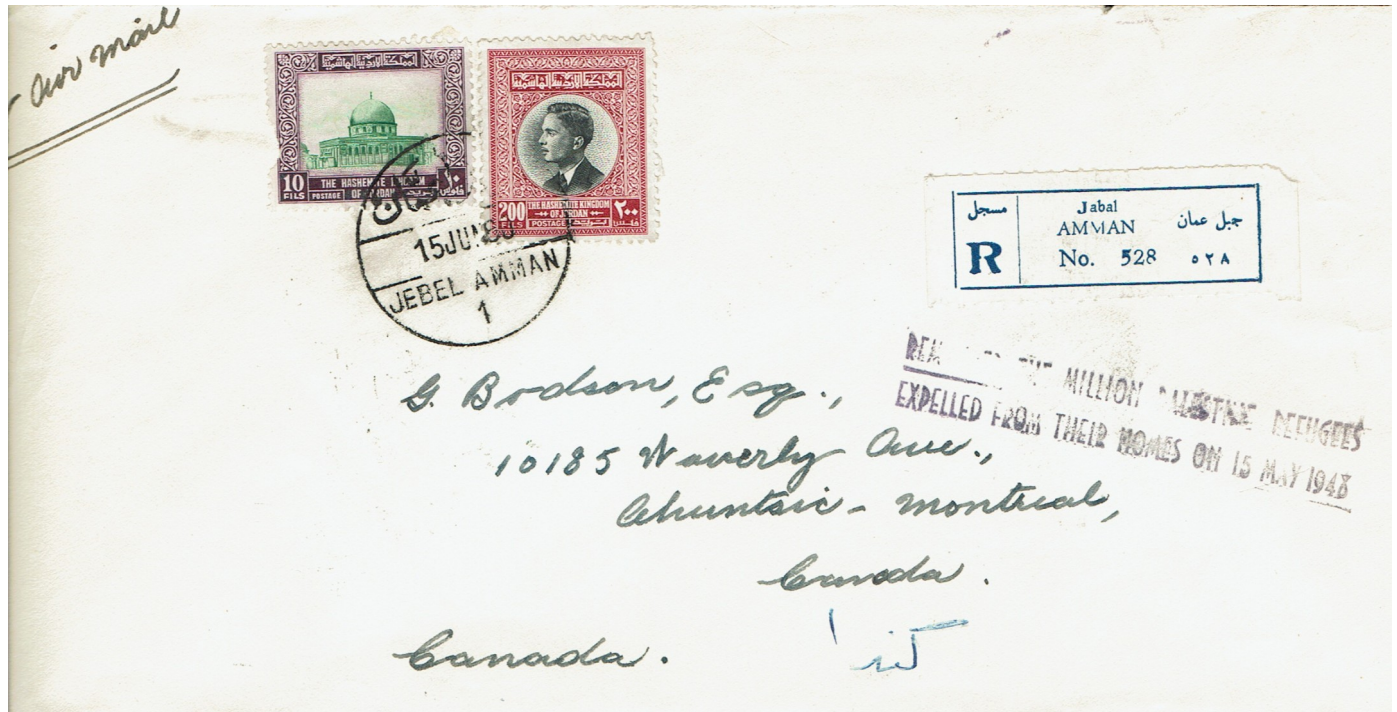 air mail
المملكة الأردنية الهاشمية
10 FILS
POSTAGE
THE HASHEMITE KINGDOM OF JORDAN
١٠
المملكة الأردنية الهاشمية
200 FILS
THE HASHEMITE KINGDOM OF JORDAN
POSTAGE
٢٠٠
15 JUN
JEBEL AMMAN
1
مسجل
R
Jabal
AMMAN
جبل عمان
No. 528 ٥٢٨
MILLION PALESTINE REFUGEES
EXPELLED FROM THEIR HOMES ON 15 MAY 1948
G. Bodson, Esq.,
10185 Waverly Ave.,
Ahuntsic - Montreal,
Canada.
Canada.
كندا